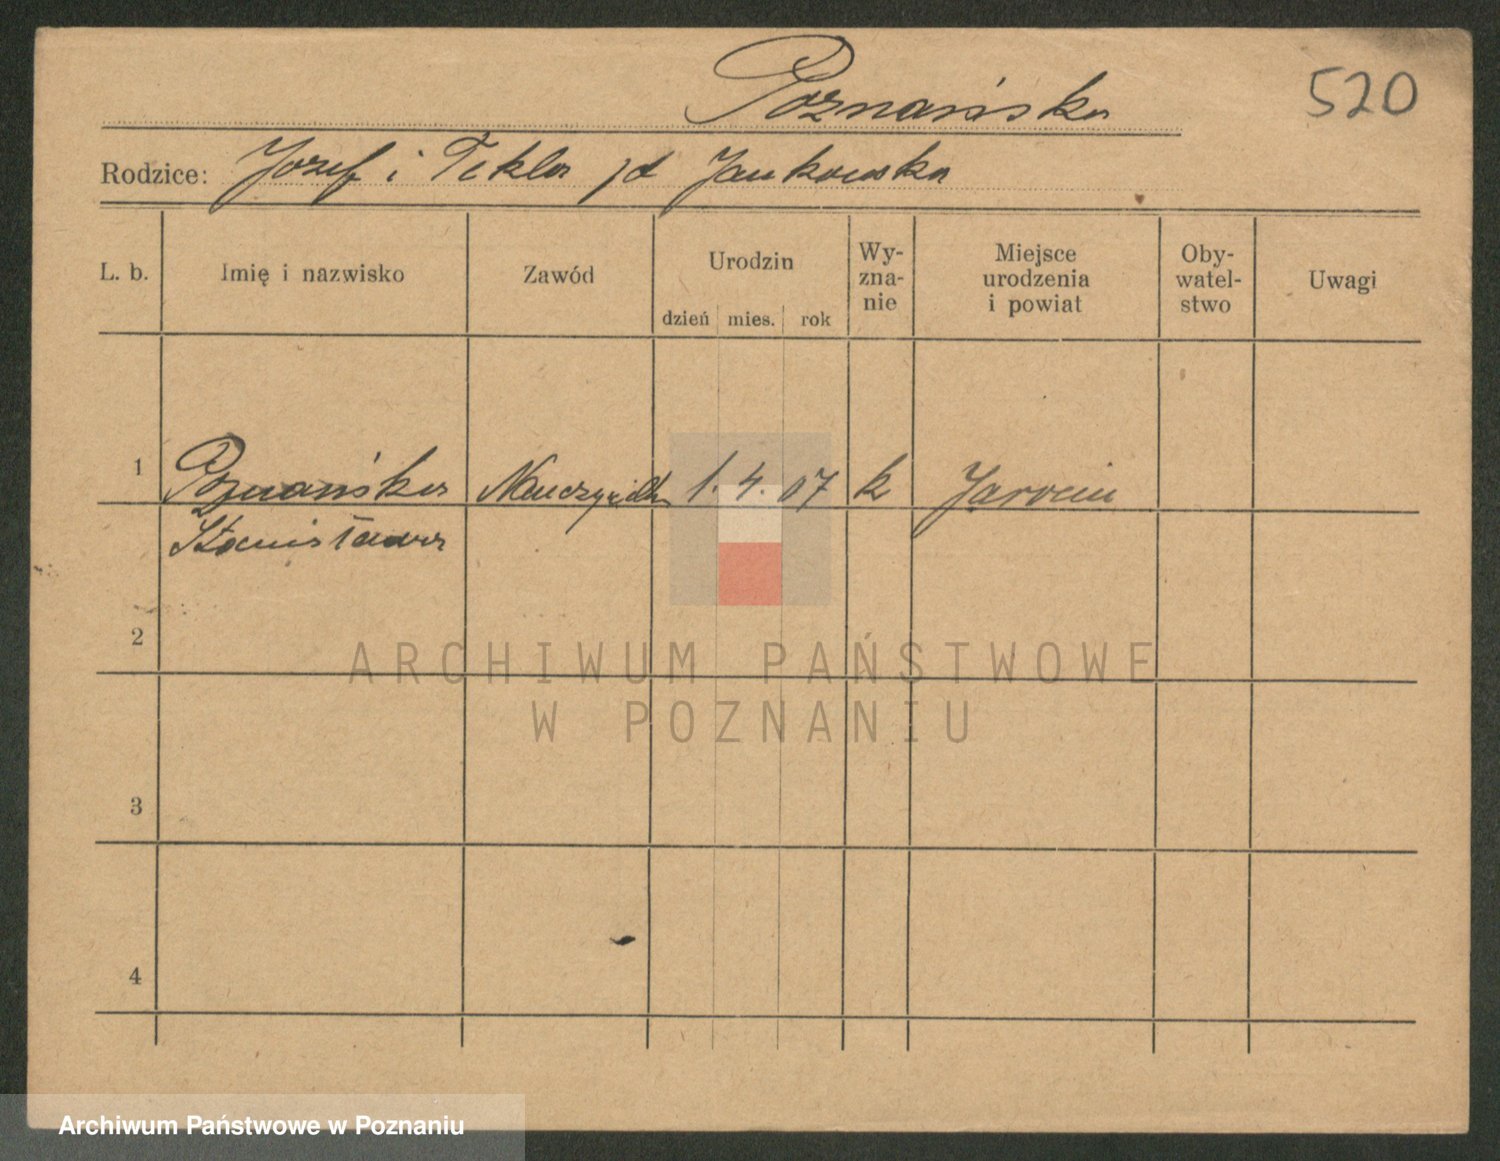 Poznańska
520
Rodzice: Józef i Tekla zd Jankowska
L. b.
Imię i nazwisko
Zawód
Urodzin
dzień mies. rok
Wy-
zna-
nie
Miejsce
urodzenia
i powiat
Oby-
watel-
stwo
Uwagi
1 Poznańska Nauczycielka 1. 4. 07 k Jarocin
Stanisława
2
3
4
ARCHIWUM PAŃSTWOWE
W POZNANIU
Archiwum Państwowe w Poznaniu